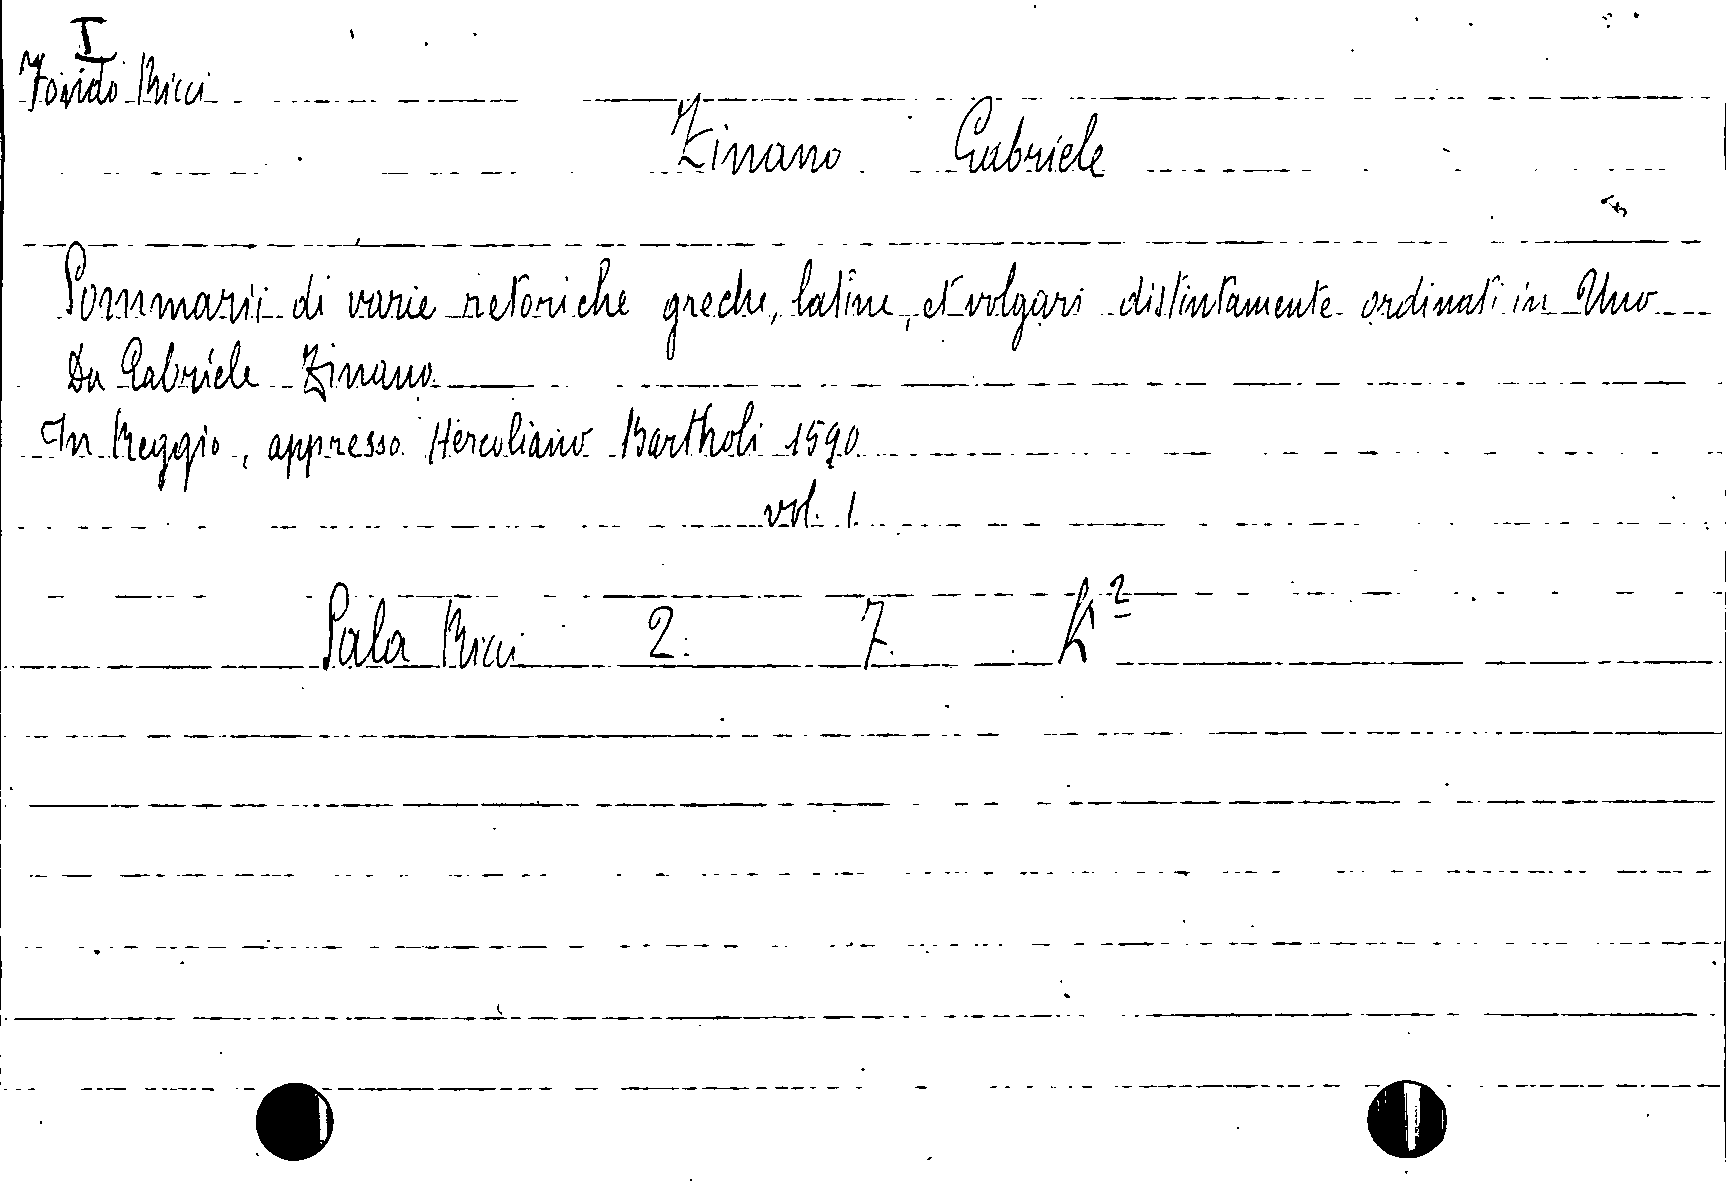 I
Fondo Ricci
Zinano Gabriele
Sommarii di varie retoriche greche, latine, et volgari distintamente ordinati in Uno
Da Gabriele Zinano
In Reggio, appresso Herculiano Bartholi 1590
vol. 1
Sala Ricci 2. 7.